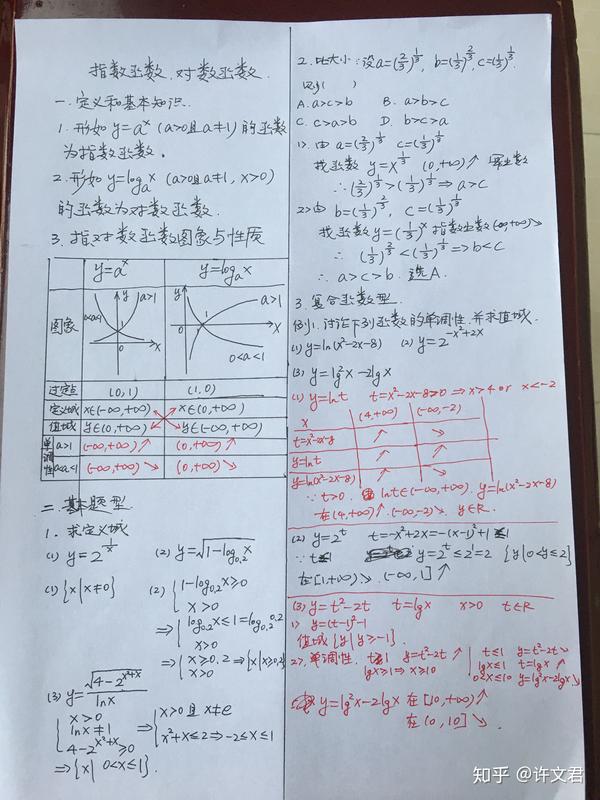 指数函数、对数函数.
一.定义和基本知识.
1.形如 y=aˣ (a>0且a≠1) 的函数
为指数函数。
2.形如 y=logₐx (a>0且a≠1, x>0)
的函数为对数函数.
3.指对数函数图象与性质
y=aˣ y=logₐx
图象 0<a<1 y a>1 0 x y a>1 x 0 0<a<1
过定点 (0,1) (1,0)
定义域 x∈(-∞,+∞) x∈(0,+∞)
值域 y∈(0,+∞) y∈(-∞,+∞)
单调性 a>1 (-∞,+∞)↗ (0,+∞)↗
0<a<1 (-∞,+∞)↘ (0,+∞)↘
二 基本题型
1.求定义域
(1) y=2^(1/x) (2) y=√(1-log₀.₂x)
(1) {x|x≠0} (2) {1-log₀.₂x≥0
x>0
⇒{log₀.₂x≤1=log₀.₂0.2
x>0
⇒{x≥0.2 ⇒{x|x≥0.2}
x>0
(3) y=√(4-2^(x²+x))/lnx
{x>0
lnx≠1 ⇒{x>0且x≠e
4-2^(x²+x)≥0 x²+x≤2⇒-2≤x≤1
⇒{x| 0<x≤1}.
2.比大小:设a=(2/3)^(1/3), b=(1/3)^(2/3), c=(1/3)^(1/3).
则( )
A. a>c>b B. a>b>c
C. c>a>b D. b>c>a
1>.由 a=(2/3)^(1/3) c=(1/3)^(1/3)
找函数 y=x^(1/3) (0,+∞)↗ 幂函数
∴(2/3)^(1/3)>(1/3)^(1/3)⇒a>c
2>由 b=(1/3)^(2/3), c=(1/3)^(1/3)
找函数y=(1/3)ˣ指数函数(-∞,+∞)↘
∴ (1/3)^(2/3)<(1/3)^(1/3)⇒b<c
∴ a>c>b. 选A.
3.复合函数型.
例1.讨论下列函数的单调性,并求值域.
(1) y=ln(x²-2x-8) (2) y=2^(-x²+2x)
(3) y=lg²x-2lgx
(1) y=lnt t=x²-2x-8>0⇒x>4 or x<-2
x (4,+∞) (-∞,-2)
t=x²-2x-8 ↗ ↘
y=lnt ↗ ↗
y=ln(x²-2x-8) ↗ ↘
∵t>0. lnt∈(-∞,+∞). y=ln(x²-2x-8)
在(4,+∞)↗.(-∞,-2)↘ y∈R.
(2) y=2ᵗ t=-x²+2x=-(x-1)²+1≤1
∵t≤1 y=2ᵗ≤2¹=2 {y|0<y≤2}
在[1,+∞)↘ (-∞,1]↗
(3) y=t²-2t t=lgx x>0 t∈R
1> y=(t-1)²-1
值域{y|y≥-1}.
2>.单调性. t≥1 y=t²-2t↗ t≤1 y=t²-2t↘
lgx≥1⇒x≥10 lgx≤1 t=lgx↗
0<x≤10 y=lg²x-2lgx↘
y=lg²x-2lgx 在[10,+∞)↗
在(0,10]↘.
知乎 @许文君